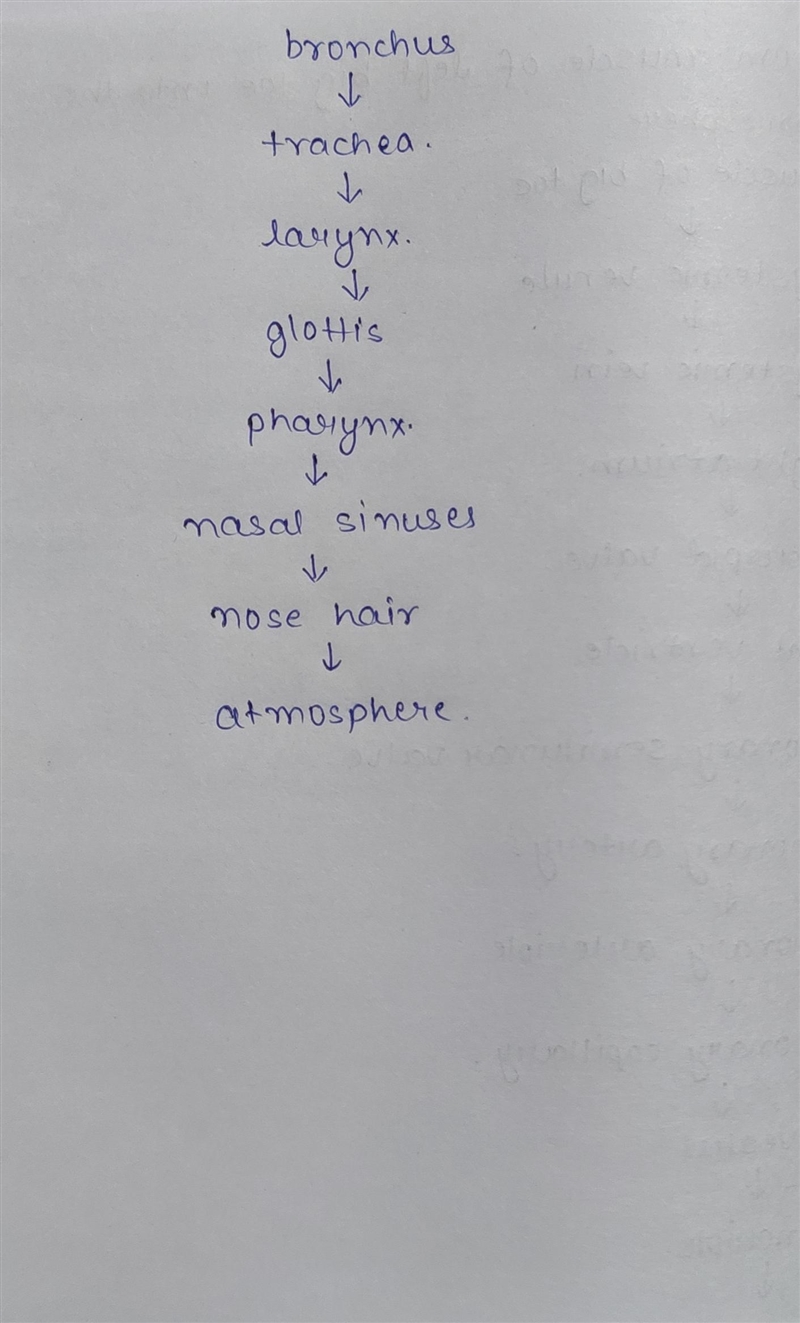 bronchus
↓
trachea.
↓
larynx.
↓
glottis
↓
pharynx.
↓
nasal sinuses
↓
nose hair
↓
atmosphere.